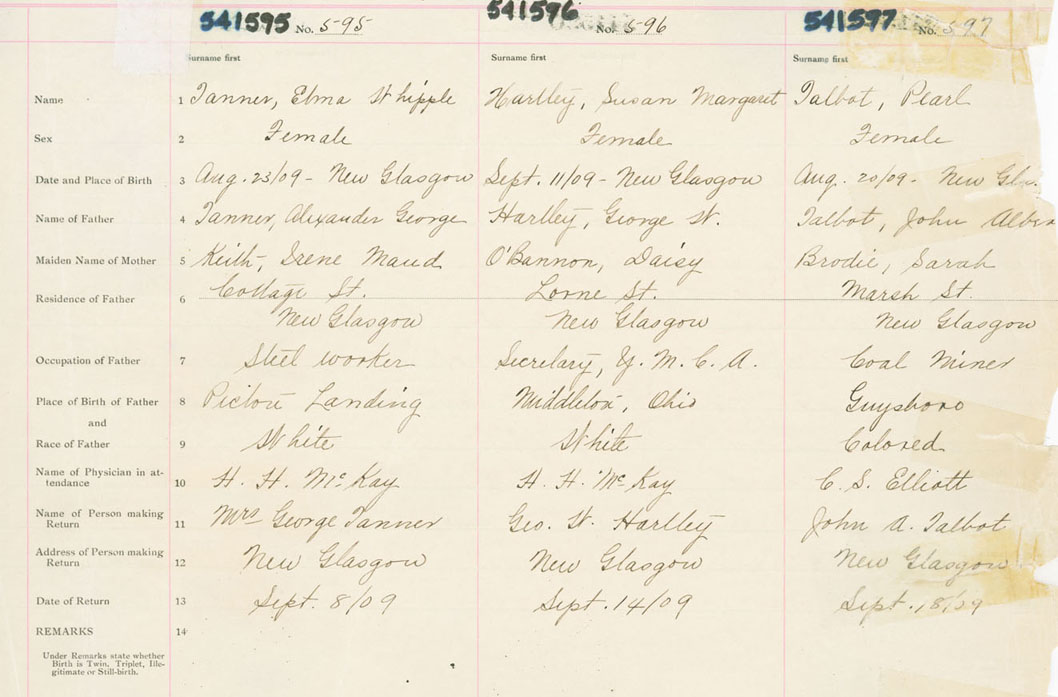 541595 No. 595 541596 No. 596 541597 No. 597
Surname first Surname first Surname first
Name 1 Tanner, Elma Whipple Hartley, Susan Margaret Talbot, Pearl
Sex 2 Female Female Female
Date and Place of Birth 3 Aug. 23/09 - New Glasgow Sept. 11/09 - New Glasgow Aug. 20/09 - New
Name of Father 4 Tanner, Alexander George Hartley, George W. Talbot, John
Maiden Name of Mother 5 Keith, Irene Maud O'Bannon, Daisy Brodie, Sarah
Residence of Father 6 Cottage St. Lorne St. Marsh St.
New Glasgow New Glasgow New Glasgow
Occupation of Father 7 Steel worker Secretary, Y. M. C. A. Coal Miner
Place of Birth of Father 8 Pictou Landing Ohio Guysboro
and
Race of Father 9 White White Colored
Name of Physician in at-
tendance 10 H. H. McKay H. H. McKay C. S. Elliott
Name of Person making
Return 11 Mrs George Tanner Geo. W. Hartley John A. Talbot
Address of Person making
Return 12 New Glasgow New Glasgow New Glasgow
Date of Return 13 Sept. 8/09 Sept. 14/09 Sept. 18/09
REMARKS 14
Under Remarks state whether
Birth is Twin, Triplet, Ille-
gitimate or Still-birth.